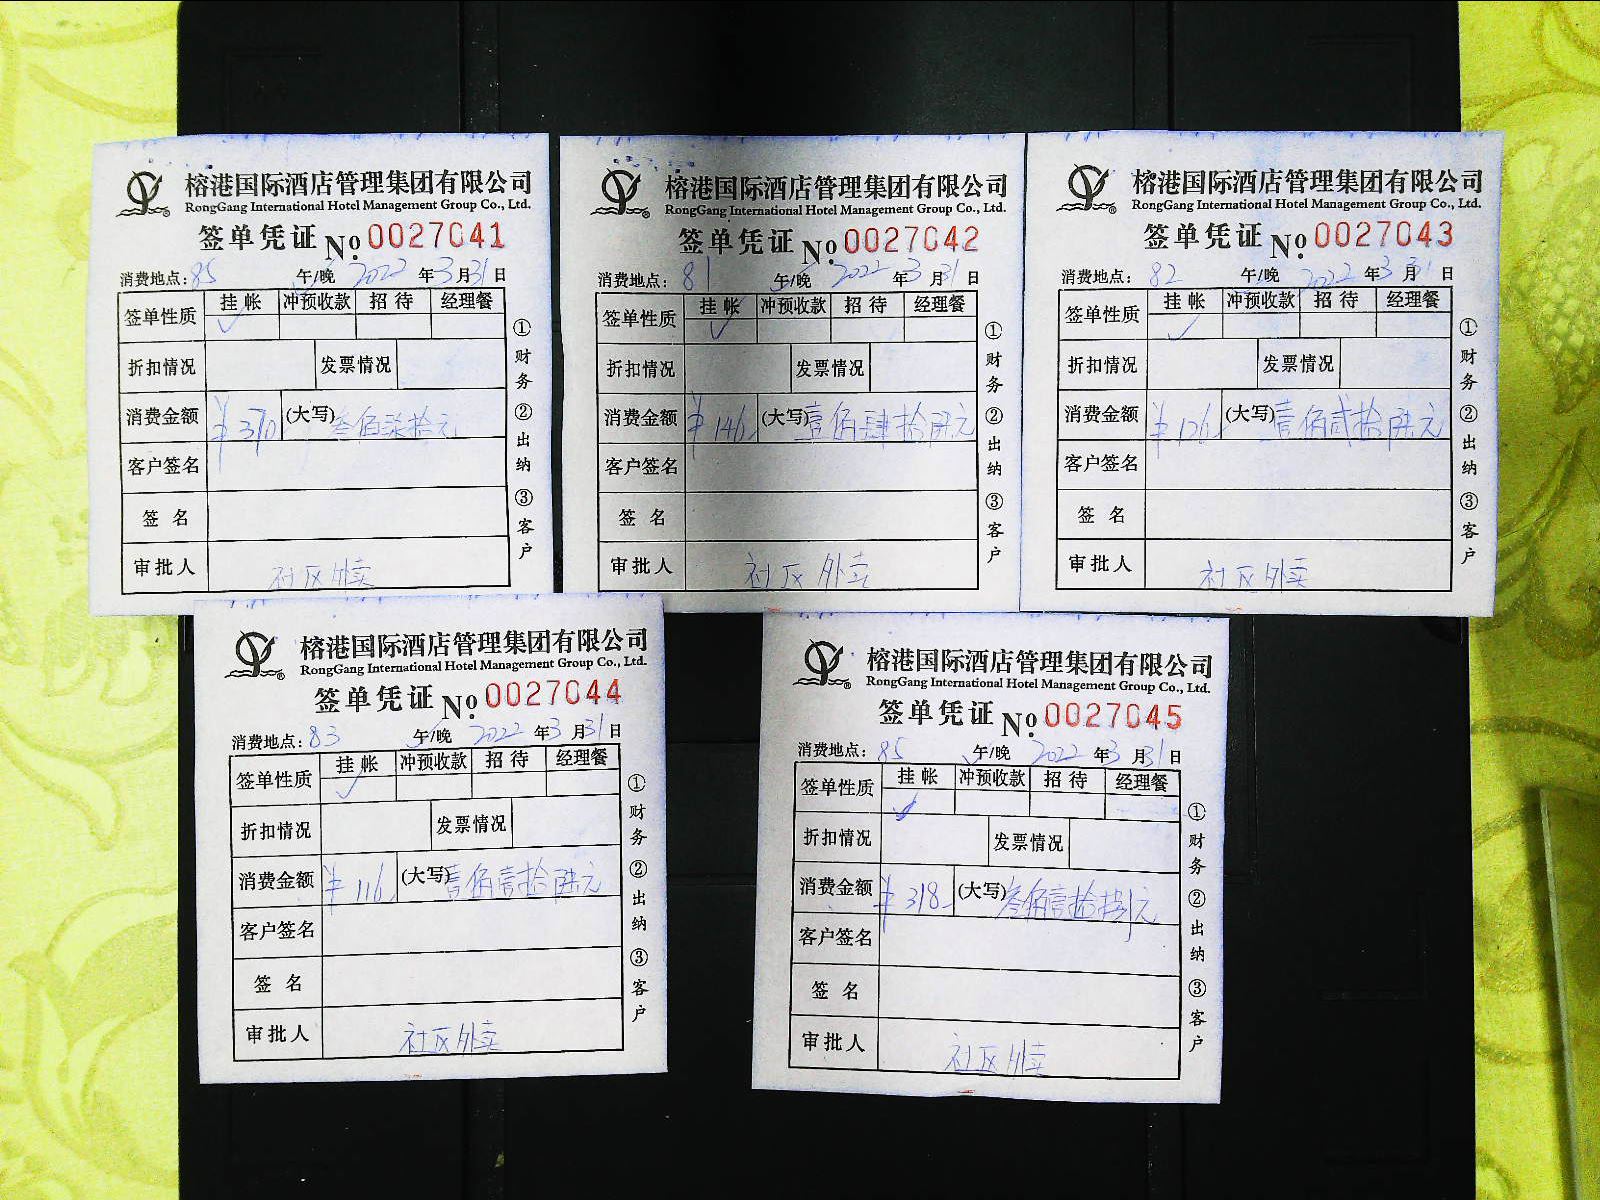 榕港国际酒店管理集团有限公司
RongGang International Hotel Management Group Co., Ltd.
签单凭证 No. 0027041
消费地点: 85 午/晚 2022 年 3 月 31 日
签单性质 挂帐 冲预收款 招待 经理餐
✓
折扣情况 发票情况
消费金额 ¥370 (大写) 叁佰柒拾元
客户签名
签名
审批人 社区外卖
①财务 ②出纳 ③客户
榕港国际酒店管理集团有限公司
RongGang International Hotel Management Group Co., Ltd.
签单凭证 No. 0027042
消费地点: 81 午/晚 2022 年 3 月 31 日
签单性质 挂帐 冲预收款 招待 经理餐
✓
折扣情况 发票情况
消费金额 ¥146 (大写) 壹佰肆拾陆元
客户签名
签名
审批人 社区外卖
①财务 ②出纳 ③客户
榕港国际酒店管理集团有限公司
RongGang International Hotel Management Group Co., Ltd.
签单凭证 No. 0027043
消费地点: 82 午/晚 2022 年 3 月 31 日
签单性质 挂帐 冲预收款 招待 经理餐
✓
折扣情况 发票情况
消费金额 ¥126 (大写) 壹佰贰拾陆元
客户签名
签名
审批人 社区外卖
①财务 ②出纳 ③客户
榕港国际酒店管理集团有限公司
RongGang International Hotel Management Group Co., Ltd.
签单凭证 No. 0027044
消费地点: 83 午/晚 2022 年 3 月 31 日
签单性质 挂帐 冲预收款 招待 经理餐
✓
折扣情况 发票情况
消费金额 ¥116 (大写) 壹佰壹拾陆元
客户签名
签名
审批人 社区外卖
①财务 ②出纳 ③客户
榕港国际酒店管理集团有限公司
RongGang International Hotel Management Group Co., Ltd.
签单凭证 No. 0027045
消费地点: 85 午/晚 2022 年 3 月 31 日
签单性质 挂帐 冲预收款 招待 经理餐
✓
折扣情况 发票情况
消费金额 ¥318 (大写) 叁佰壹拾捌元
客户签名
签名
审批人 社区外卖
①财务 ②出纳 ③客户